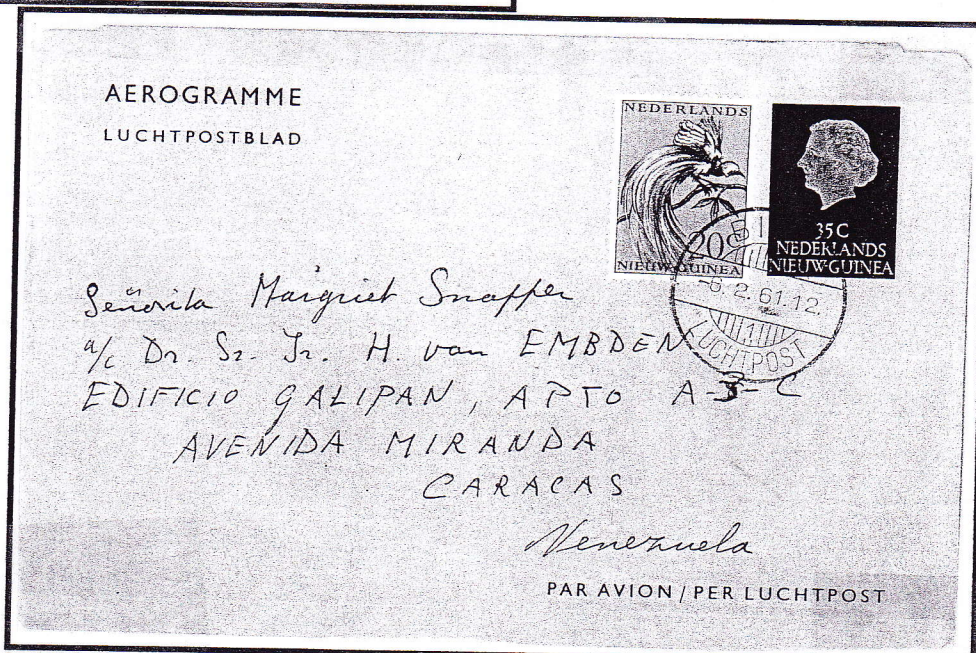 AEROGRAMME
LUCHTPOSTBLAD
NEDERLANDS
20c
NIEUW-GUINEA
35C
NEDERLANDS
NIEUW-GUINEA
-6.2.61.12.
1
LUCHTPOST
Señorita Margriet Snapper
a/c Dr. Sr. Jr. H. van EMBDEN
EDIFICIO GALIPAN, APTO A-3-C
AVENIDA MIRANDA
CARACAS
Venezuela
PAR AVION / PER LUCHTPOST